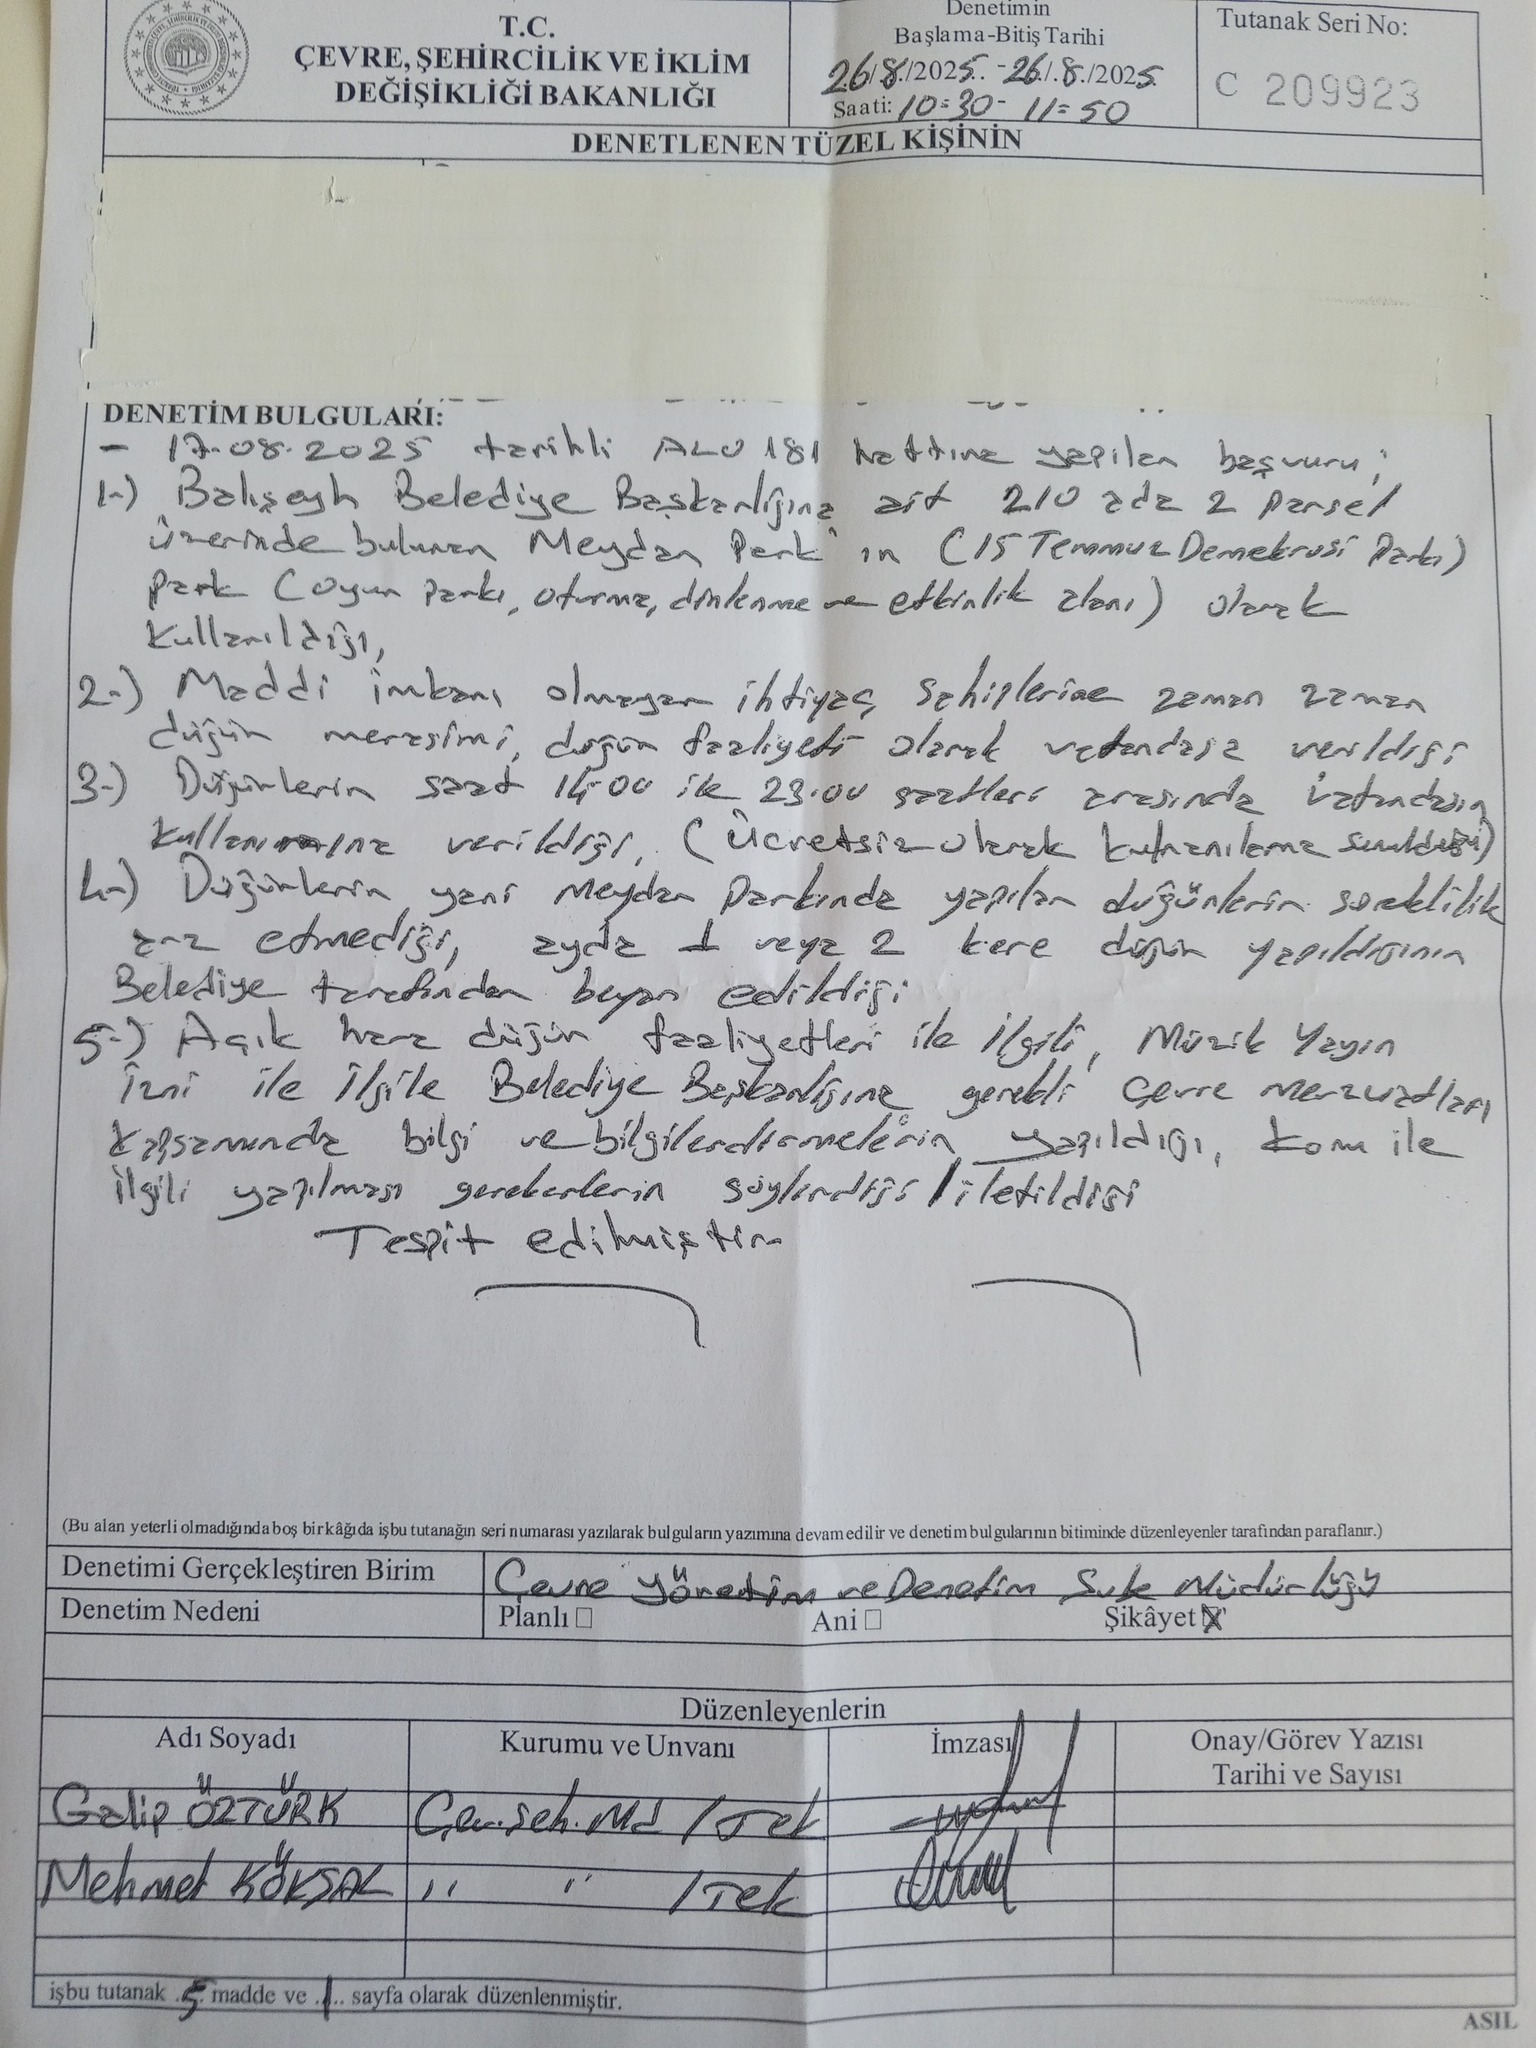 T.C.
ÇEVRE, ŞEHİRCİLİK VE İKLİM
DEĞİŞİKLİĞİ BAKANLIĞI
Denetimin
Başlama-Bitiş Tarihi
26/8/2025.. - 26/.8./2025.
Saati: 10:30 - 11:50
Tutanak Seri No:
C 209923
DENETLENEN TÜZEL KİŞİNİN
DENETİM BULGULARI:
- 17.08.2025 tarihli ALO 181 hattına yapılan başvuru;
1-) Balışeyh Belediye Başkanlığına ait 210 ada 2 parsel
üzerinde bulunan Meydan Park'ın (15 Temmuz Demokrasi Parkı)
park (oyun parkı, oturma, dinlenme ve etkinlik alanı) olarak
kullanıldığı,
2-) Maddi imkanı olmayan ihtiyaç sahiplerine zaman zaman
düğün merasimi, düğün faaliyeti olarak vatandaşa verildiği
3-) Düğünlerin saat 14.00 ile 23.00 saatleri arasında vatandaşın
kullanımına verildiği, (Ücretsiz olarak kullanılama sunulduğu)
4-) Düğünlerin yani Meydan Parkında yapılan düğünlerin süreklilik
arz etmediği, ayda 1 veya 2 kere düğün yapıldığının
Belediye tarafından beyan edildiği
5-) Açık hava düğün faaliyetleri ile ilgili, Müzik Yayın
İzni ile ilgile Belediye Başkanlığına gerekli Çevre Mevzuatları
kapsamında bilgi ve bilgilendirmelerin yapıldığı, konu ile
ilgili yapılması gerekenlerin söylendiği / iletildiği
Tespit edilmiştir
(Bu alan yeterli olmadığında boş bir kâğıda işbu tutanağın seri numarası yazılarak bulguların yazımına devam edilir ve denetim bulgularının bitiminde düzenleyenler tarafından paraflanır.)
Denetimi Gerçekleştiren Birim Çevre Yönetim ve Denetim Şube Müdürlüğü
Denetim Nedeni Planlı ☐ Ani ☐ Şikâyet ☒
Düzenleyenlerin
Adı Soyadı Kurumu ve Unvanı İmzası Onay/Görev Yazısı
Tarihi ve Sayısı
Galip ÖZTÜRK Çev.Şeh.Md / Tek
Mehmet KÖKSAL " " / Tek
işbu tutanak .5. madde ve .1... sayfa olarak düzenlenmiştir.
ASIL